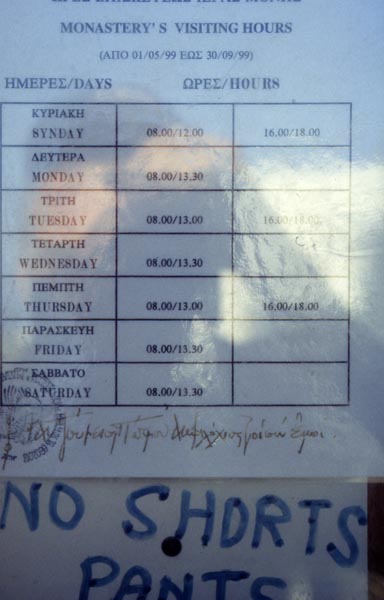 ΩΡΕΣ ΕΠΙΣΚΕΨΕΩΣ ΙΕΡΑΣ ΜΟΝΗΣ
MONASTERY'S VISITING HOURS
(ΑΠΟ 01/05/99 ΕΩΣ 30/09/99)
ΗΜΕΡΕΣ/DAYS ΩΡΕΣ/HOURS
ΚΥΡΙΑΚΗ
SYNDAY 08.00/12.00 16.00/18.00
ΔΕΥΤΕΡΑ
MONDAY 08.00/13.30
ΤΡΙΤΗ
TUESDAY 08.00/13.00 16.00/18.00
ΤΕΤΑΡΤΗ
WEDNESDAY 08.00/13.30
ΠΕΜΠΤΗ
THURSDAY 08.00/13.00 16.00/18.00
ΠΑΡΑΣΚΕΥΗ
FRIDAY 08.00/13.30
ΣΑΒΒΑΤΟ
SATURDAY 08.00/13.30
NO SHORTS
PANTS